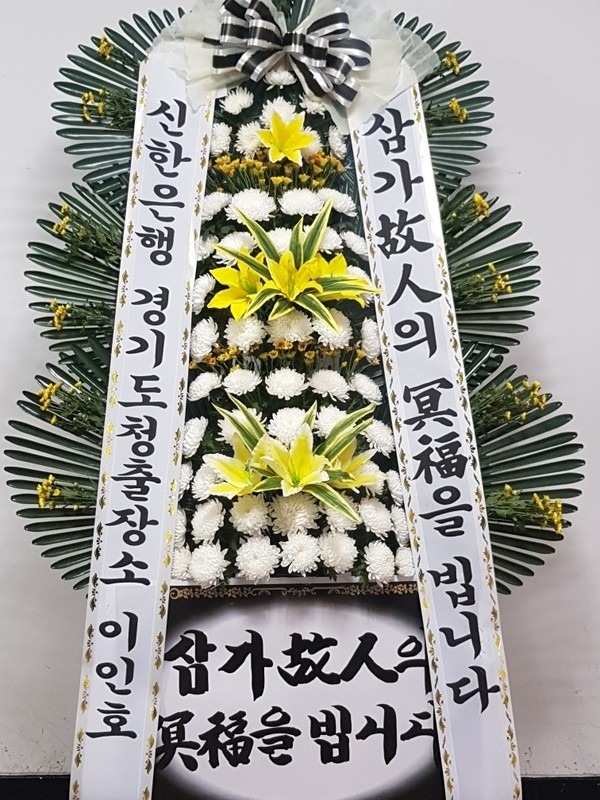 신한은행 경기도청출장소 이인호
삼가故人의 冥福을 빕니다
삼가故人의
冥福을 빕니다